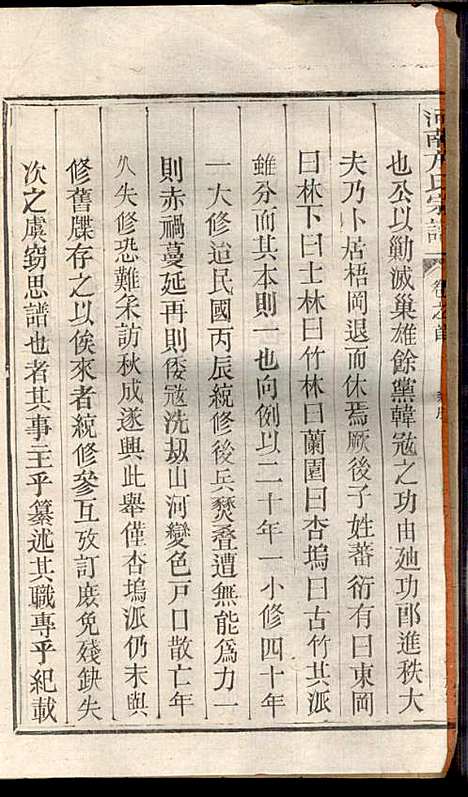 河南方氏宗譜 卷之首
也公以勦滅巢雄餘黨韓寇之功由廸功郎進秩大
夫乃卜居梧岡退而休焉厥後子姓蕃衍有曰東岡
曰林下曰士林曰竹林曰蘭園曰杏塢曰古竹其派
雖分而其本則一也向例以二十年一小修四十年
一大修迨民國丙辰統修後兵燹疊遭無能爲力一
則赤禍蔓延再則倭寇洗刼山河變色戸口散亡年
久失修恐難采訪秋成遂興此舉僅杏塢派仍未與
修舊牒存之以俟來者統修參互攷訂庶免殘缺失
次之虞窃思譜也者其事主乎纂述其職專乎紀載